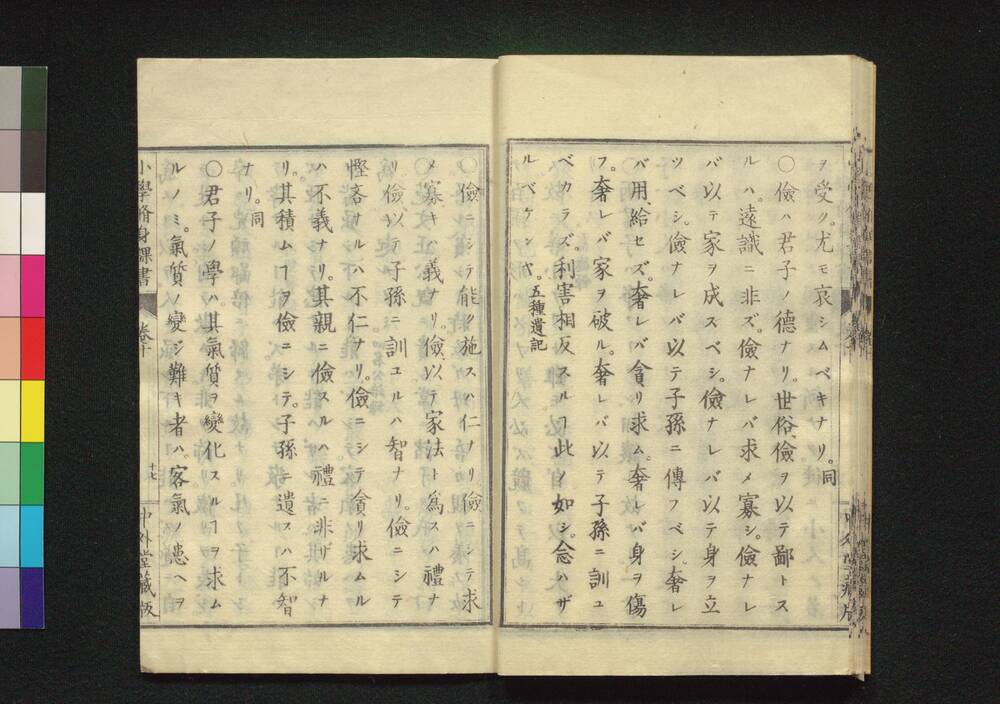 ヲ受ク。尤モ哀シムベキナリ。同
○儉ハ君子ノ德ナリ。世俗儉ヲ以テ鄙トス
ルハ。遠識ニ非ズ。儉ナレバ求メ寡シ。儉ナレ
バ以テ家ヲ成スベシ。儉ナレバ以テ身ヲ立
ツベシ。儉ナレバ以テ子孫ニ傳フベシ。奢レ
バ用給セズ。奢レバ貪リ求ム。奢レバ身ヲ傷
フ。奢レバ家ヲ破ル。奢レバ以テ子孫ニ訓ユ
ベカラズ。利害相反スルヿ此ノ如シ。念ハザ
ルベケンヤ。五種遺記
○儉ニシテ能ク施スハ仁ナリ儉ニシテ求
メ寡キハ義ナリ。儉以テ家法ト爲スハ禮ナ
リ儉以テ子孫ニ訓ユルハ智ナリ。儉ニシテ
慳吝ナルハ不仁ナリ。儉ニシテ貪リ求ムル
ハ不義ナリ。其親ニ儉スルハ禮ニ非ザルナ
リ。其積ムヿヲ儉ニシテ子孫ニ遺スハ不智
ナリ。同
○君子ノ學ハ。其氣質ヲ變化スルヿヲ求ム
ルノミ。氣質ノ變ジ難キ者ハ。客氣ノ患ヘヲ
小學脩身課書 卷十 十七 中外堂藏版